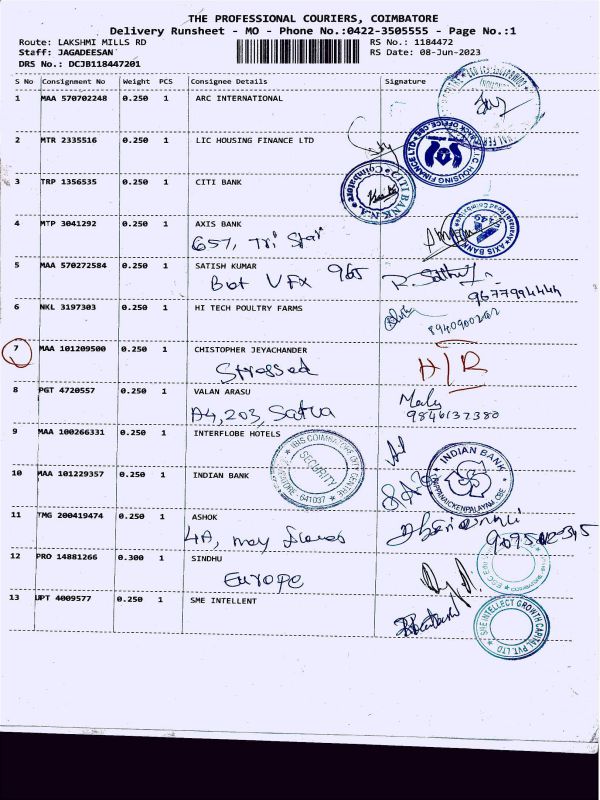 THE PROFESSIONAL COURIERS, COIMBATORE
Delivery Runsheet - MO - Phone No.:0422-3505555 - Page No.:1
Route: LAKSHMI MILLS RD RS No.: 1184472
Staff: JAGADEESAN RS Date: 08-Jun-2023
DRS No.: DCJB118447201
S No Consignment No Weight PCS Consignee Details Signature
1 MAA 570702248 0.250 1 ARC INTERNATIONAL
2 MTR 2335516 0.250 1 LIC HOUSING FINANCE LTD
LIC HOUSING FINANCE LTD
3 TRP 1356535 0.250 1 CITI BANK
CITI BANK N.A. Coimbatore
4 MTP 3041292 0.250 1 AXIS BANK
657, Tri Star
AXIS BANK
5 MAA 570272584 0.250 1 SATISH KUMAR 965
Bot VFX
6 NKL 3197303 0.250 1 HI TECH POULTRY FARMS
7 MAA 101209500 0.250 1 CHISTOPHER JEYACHANDER
Stressed H/R
8 PGT 4720557 0.250 1 VALAN ARASU
A4, 203, Satva 9846137380
9 MAA 100266331 0.250 1 INTERFLOBE HOTELS
IBIS COIMBATORE CITY CENTRE
SECURITY
641037
10 MAA 101229357 0.250 1 INDIAN BANK
INDIAN BANK
PAPPANAICKENPALAYAM, CBE
11 TMG 200419474 0.250 1 ASHOK
4A, may
12 PRO 14881266 0.300 1 SINDHU
Europe
13 UPT 4009577 0.250 1 SME INTELLENT
SME INTELLECT GROWTH CAPITAL PVT. LTD